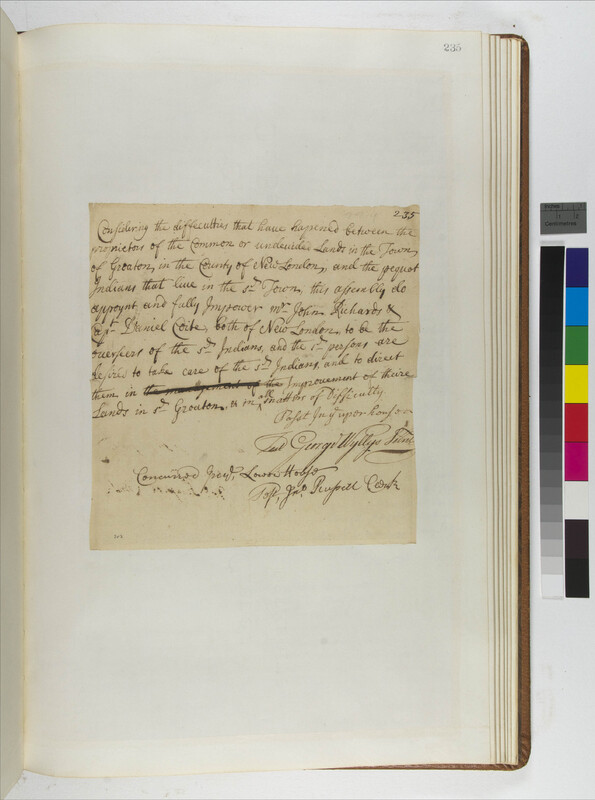 235
235
Considering the diffeculties that have hapened between the
proprietors of the Common or undevided Lands in the Town
of Groaton, in the County of New London, and the pequot
Indians that live in the sd. Town, this assembly do
appoynt and fully Impower mr. John Richards &
Capt. Daniel Coite, both of New London, to be the
overseers of the sd. Indians, and the sd. persons are
desired to take care of the sd. Indians, and to direct
them in the management of the Improvement of theire
Lands in sd. Groaton, & in all matters of Difficulty.
Past In ye upper house
Test George Wyllys Secret
Concurred In ye Lower House
Test, Jno. Russell Clerk